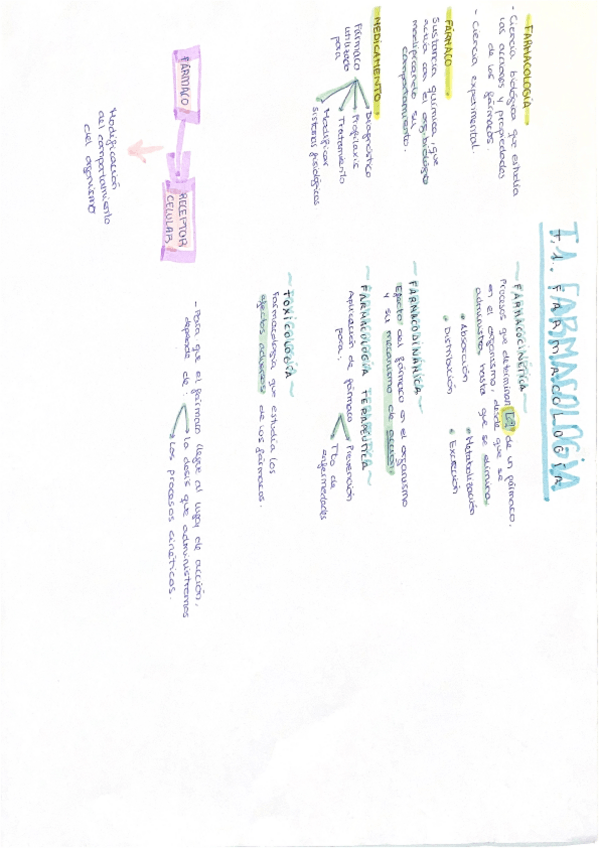 T.1. FARMACOLOGÍA
FARMACOLOGÍA
- Ciencia biológica que estudia
las acciones y propiedades
de los fármacos.
- Ciencia experimental.
FÁRMACO
Sustancia química que
actúa con el org.biológico
modificando su
comportamiento.
MEDICAMENTO
Fármaco
utilizado
para
Diagnóstico
Profilaxis
Tratamiento
Modificar
sistemas fisiológicos
FÁRMACO
RECEPTOR
CELULAR
Modificación
del comportamiento
del organismo
~ FARMACOCINÉTICA ~
Procesos que determinan [ ] de un fármaco,
en el organismo, desde que se
administra hasta que se elimina
• Absorción
• Distribución
• Metabolización
• Excreción
~ FARMACODINÁMICA ~
Efecto del fármaco en el organismo
y su mecanismo de acción
~ FARMACOLOGÍA TERAPÉUTICA ~
Aplicación de fármaco
para:
Prevención
Tto de
enfermedades
~ TOXICOLOGÍA ~
Farmacología que estudia los
efectos adversos de los fármacos.
- Para que el fármaco llegue al lugar de acción,
depende de:
la dosis que administramos
Los procesos cinéticos.